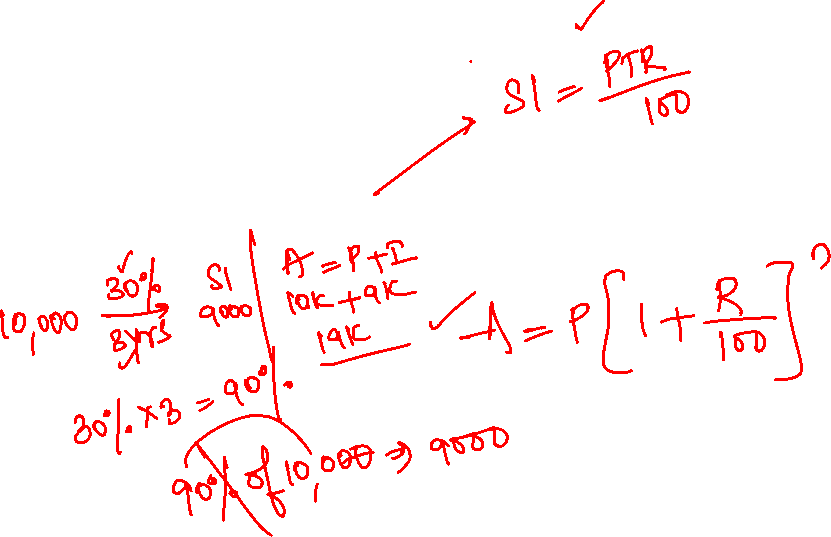 SI = PTR/100
10,000 30% 3yrs → SI 9000
A = P + I
10K + 9K
19K
A = P[1 + R/100]ⁿ
30% × 3 = 90%
90% of 10,000 ⇒ 9000